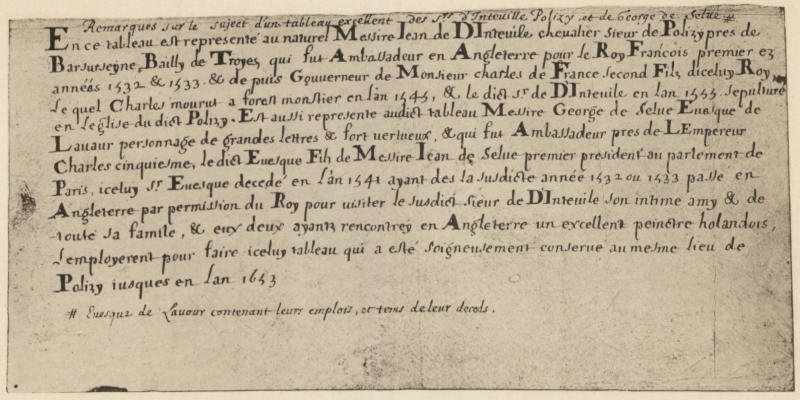 Remarques sur le suject d'un tableau excellent des srs d'Inteuille Polizy, et de George de Selue #
En ce tableau est representé au naturel Messire Iean de DInteuile cheualier sieur de Polizy pres de
Barsurseyne, Bailly de Troyes, qui fut Ambassadeur en Angleterre pour le Roy François premier ez
années 1532 & 1533 & de puis Gouuerneur de Monsieur charles de France second Filz diceluy Roy,
le quel Charles mourut a forest monstier en lan 1545, & le dict sr. de DInteuile en lan 1555 sepulturé
en l'eglise du dict Polizy. Est aussi representé audict tableau Messire George de Selue Euesque de
Lauaur personnage de grandes lettres & fort vertueux, & qui fut Ambassadeur pres de LEmpereur
Charles cinquiesme, le dict Euesque Filz de Messire Iean de Selue premier president au parlement de
Paris, iceluy sr. Euesque decedé en lan 1541 ayant des la susdicte année 1532 ou 1533 passé en
Angleterre par permission du Roy pour visiter le susdict sieur de DInteuile son intime amy & de
toute sa famile, & eux deux ayantz rencontrez en Angleterre un excellent peinctre holandois,
l'employerent pour faire iceluy tableau qui a esté soigneusement conserué au mesme lieu de
Polizy iusques en lan 1653
# Euesque de Lauour contenant leurs emplois, et tems de leur deceds.